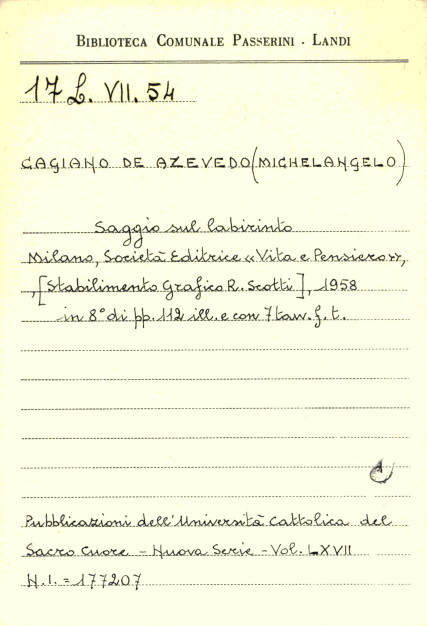 BIBLIOTECA COMUNALE PASSERINI - LANDI
17 L. VII. 54
CAGIANO DE AZEVEDO (MICHELANGELO)
Saggio sul labirinto
Milano, Società Editrice «Vita e Pensiero»,
,[Stabilimento Grafico R. Scotti], 1958
in 8° di pp. 112 ill. e con 7 tav. f. t.
1
Pubblicazioni dell'Università Cattolica del
Sacro Cuore - Nuova Serie - Vol. LXVII
N.I. = 177207